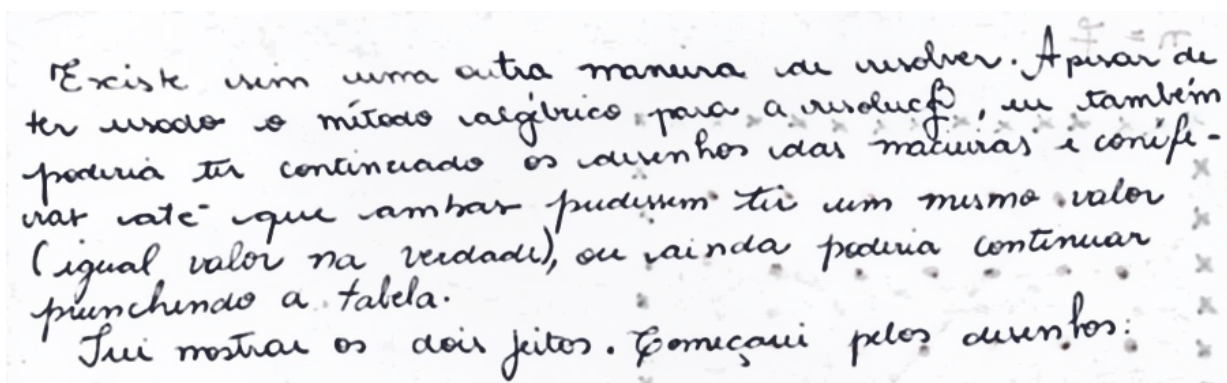 Existe sim uma outra maneira de resolver. Apesar de
ter usado o método algébrico para a resolução, eu também
poderia ter continuado os desenhos das macieiras e conífe-
ras até que ambas pudessem ter um mesmo valor
(igual valor na verdade), ou ainda poderia continuar
preenchendo a tabela.
Irei mostrar os dois jeitos. Começarei pelos desenhos: